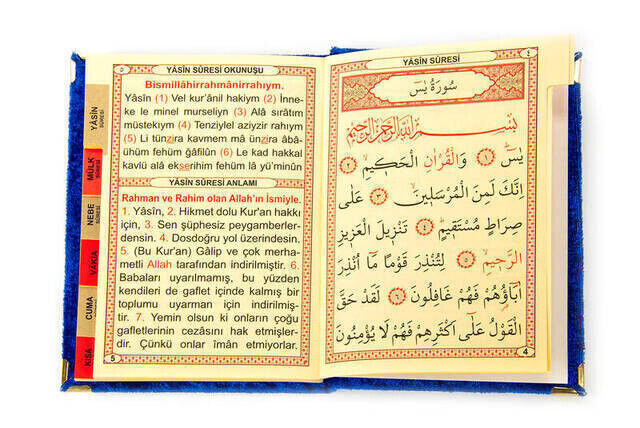 YÂSİN SÛRESİ
MÜLK
NEBE
SÛRESİ
VÂKIA
CUMA
KISA
YÂSİN SÛRESİ OKUNUŞU
Bismillâhirrahmânirrahıym.
Yâsîn (1) Vel kur'ânil hakiym (2) İnne-
ke le minel murseliyn (3) Alâ sırâtım
müstekıym (4) Tenziylel aziyzir rahıym
(5) Li tünzira kavmem mâ ünzira âbâ-
ühüm fehüm ğâfilûn (6) Le kad hakkal
kavlü alâ ekserihim fehüm lâ yü'minûn
YÂSİN SÛRESİ ANLAMI
Rahman ve Rahim olan Allah'ın İsmiyle.
1. Yâsîn, 2. Hikmet dolu Kur'an hakkı
için, 3. Sen şüphesiz peygamberler-
densin. 4. Dosdoğru yol üzerindesin.
5. (Bu Kur'an) Gâlip ve çok merha-
metli Allah tarafından indirilmiştir. 6.
Babaları uyarılmamış, bu yüzden
kendileri de gaflet içinde kalmış bir
toplumu uyarman için indirilmiş-
tir. 7. Yemin olsun ki onların çoğu
gafletlerinin cezasını hak etmişler-
dir. Çünkü onlar îmân etmiyorlar.
5
YÂSİN SÛRESİ
٤
سُورَةُ يٰسٓ
بِسْمِ اللّٰهِ الرَّحْمٰنِ الرَّحِيمِ
يٰسٓ ١ وَالْقُرْاٰنِ الْحَكِيمِ ٢
اِنَّكَ لَمِنَ الْمُرْسَلِينَ ٣ عَلٰى
صِرَاطٍ مُسْتَقِيمٍ ٤ تَنْزِيلَ الْعَزِيزِ
الرَّحِيمِ ٥ لِتُنْذِرَ قَوْمًا مَٓا اُنْذِرَ
اٰبَٓاؤُ۬هُمْ فَهُمْ غَافِلُونَ ٦ لَقَدْ حَقَّ
الْقَوْلُ عَلٰٓى اَكْثَرِهِمْ فَهُمْ لَا يُؤْمِنُونَ
4